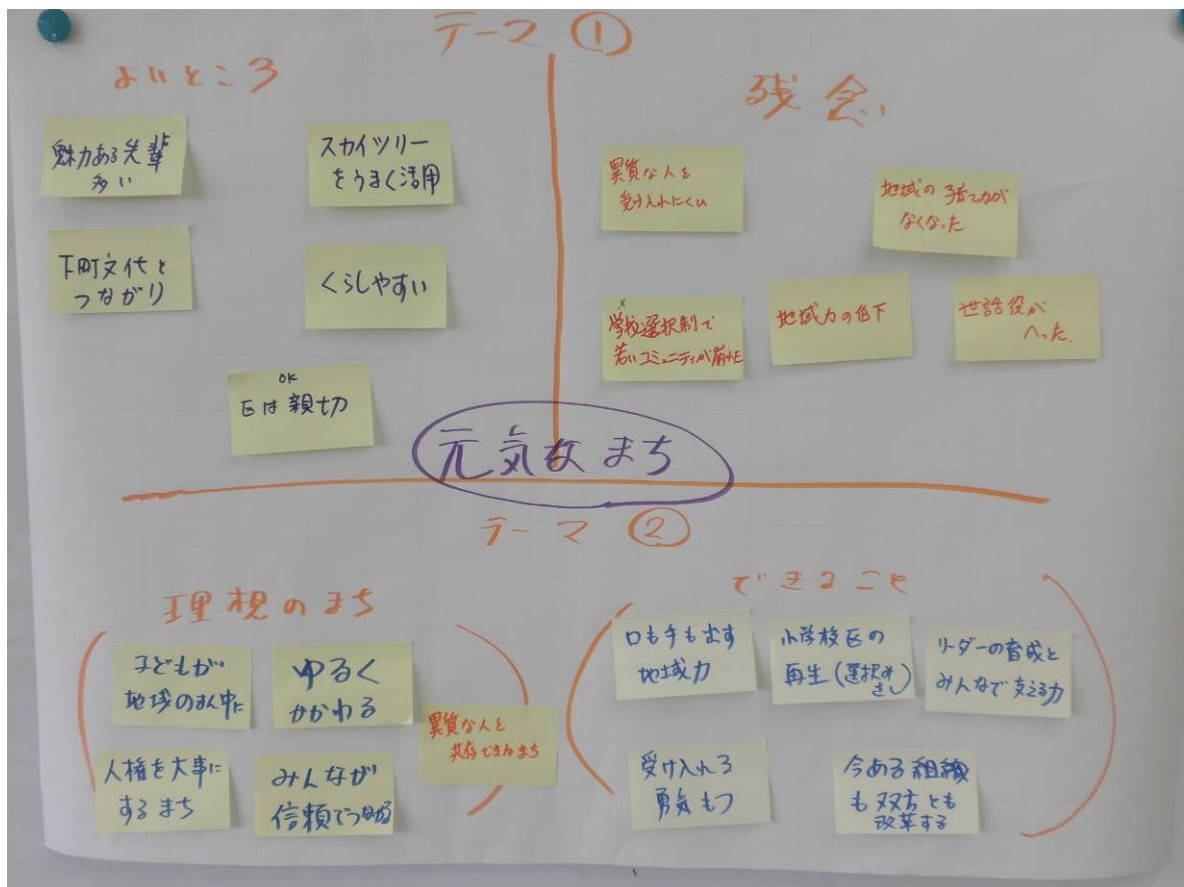 テーマ ①
よいところ
魅力ある先輩
多い
スカイツリー
をうまく活用
下町文化と
つながり
くらしやすい
OK
区は親切
残念
異質な人を
受け入れにくい
地域の子育て力が
なくなった
×
学校選択制で
若いコミュニティが崩れた
地域力の低下
世話役が
へった。
元気なまち
テーマ ②
理想のまち
子どもが
地域のまん中に
ゆるく
かかわる
異質な人と
共存できるまち
人権を大事に
するまち
みんなが
信頼でつながる
できること
口も手も出す
地域力
小学校区の
再生(選択
リーダーの育成と
みんなで支える力
受け入れる
勇気もつ
今ある組織
も双方とも
改革する